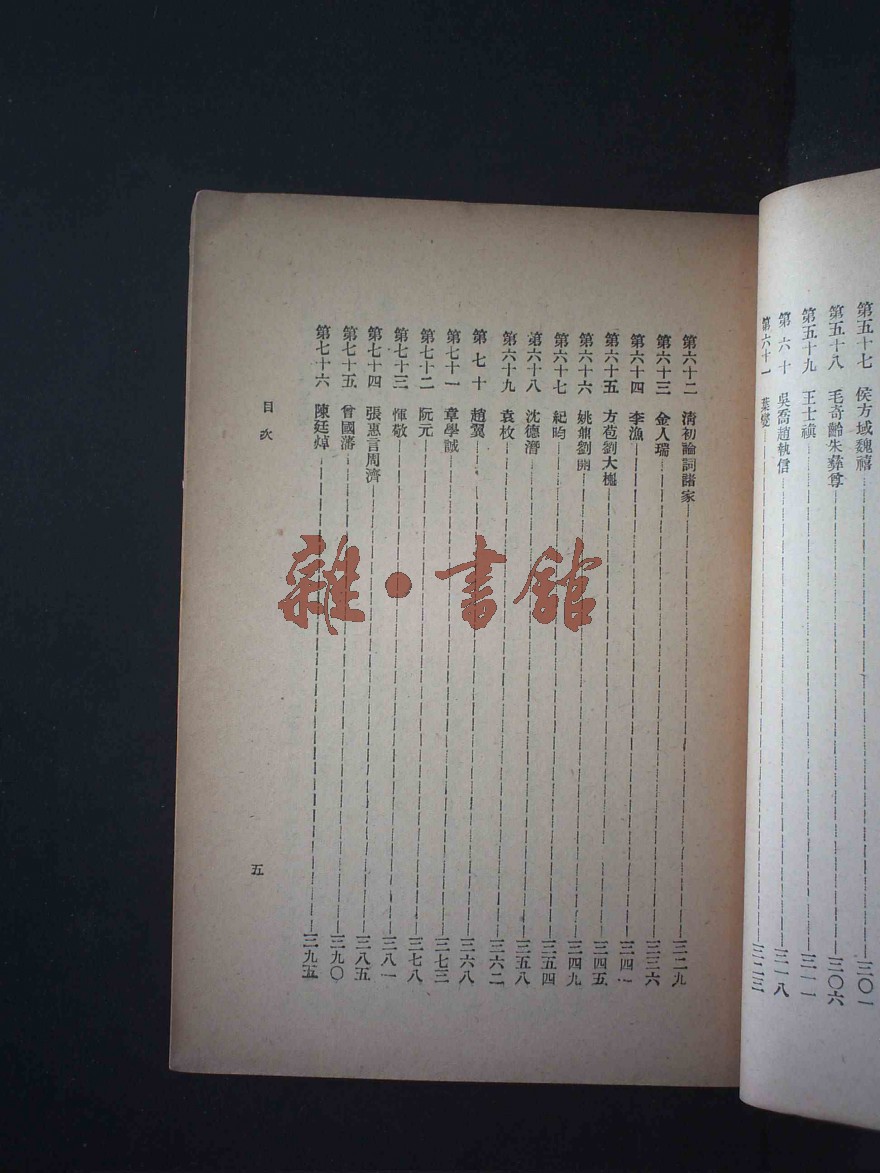 第五十七　侯方域魏禧　三〇一
第五十八　毛奇齡朱彝尊　三〇六
第五十九　王士禛　三一一
第六十　吳喬趙執信　三一八
第六十一　葉燮　三二三
第六十二　清初論詞諸家　三二九
第六十三　金人瑞　三三六
第六十四　李漁　三四一
第六十五　方苞劉大櫆　三四五
第六十六　姚鼐劉開　三四九
第六十七　紀昀　三五四
第六十八　沈德潛　三五八
第六十九　袁枚　三六二
第七十　趙翼　三六八
第七十一　章學誠　三七三
第七十二　阮元　三七八
第七十三　惲敬　三八一
第七十四　張惠言周濟　三八五
第七十五　曾國藩　三九〇
第七十六　陳廷焯　三九五
目次
五
雜·書館